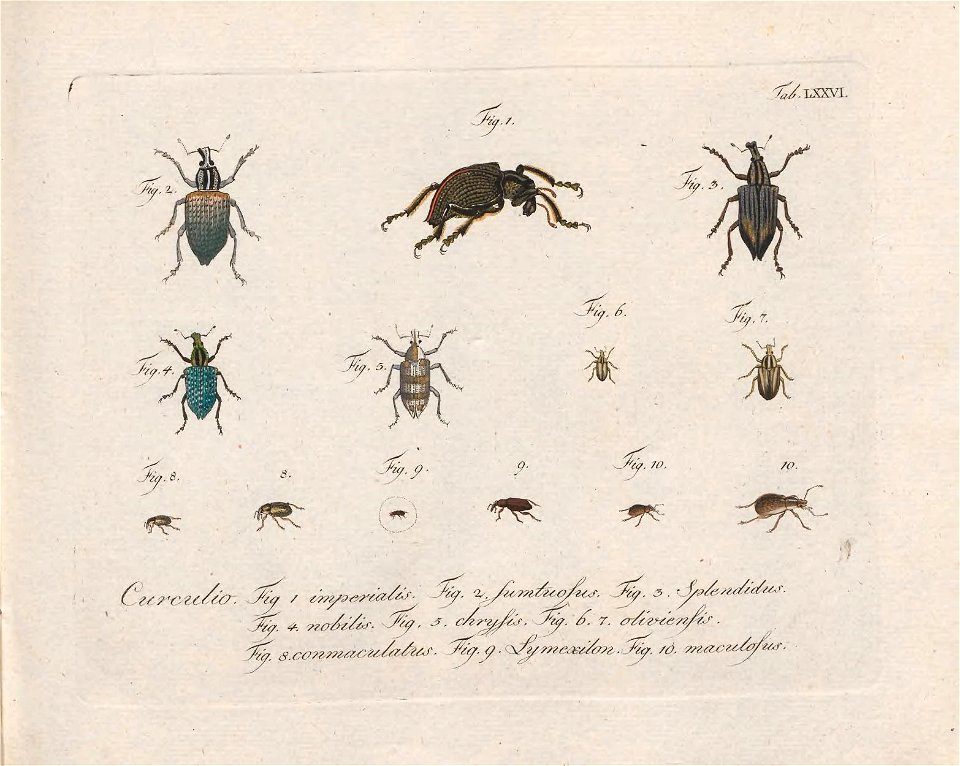 Tab. LXXVI.
Fig. 1.
Fig. 2.
Fig. 3.
Fig. 4.
Fig. 5.
Fig. 6.
Fig. 7.
Fig. 8.
8.
Fig. 9.
9.
Fig. 10.
10.
Curculio. Fig 1 imperialis. Fig. 2. ſumtuoſus. Fig. 3. Splendidus.
Fig. 4. nobilis. Fig. 5. chryſis. Fig. 6. 7. olivienſis.
Fig. 8. conmaculatus. Fig. 9. Lymexilon. Fig. 10. maculoſus.